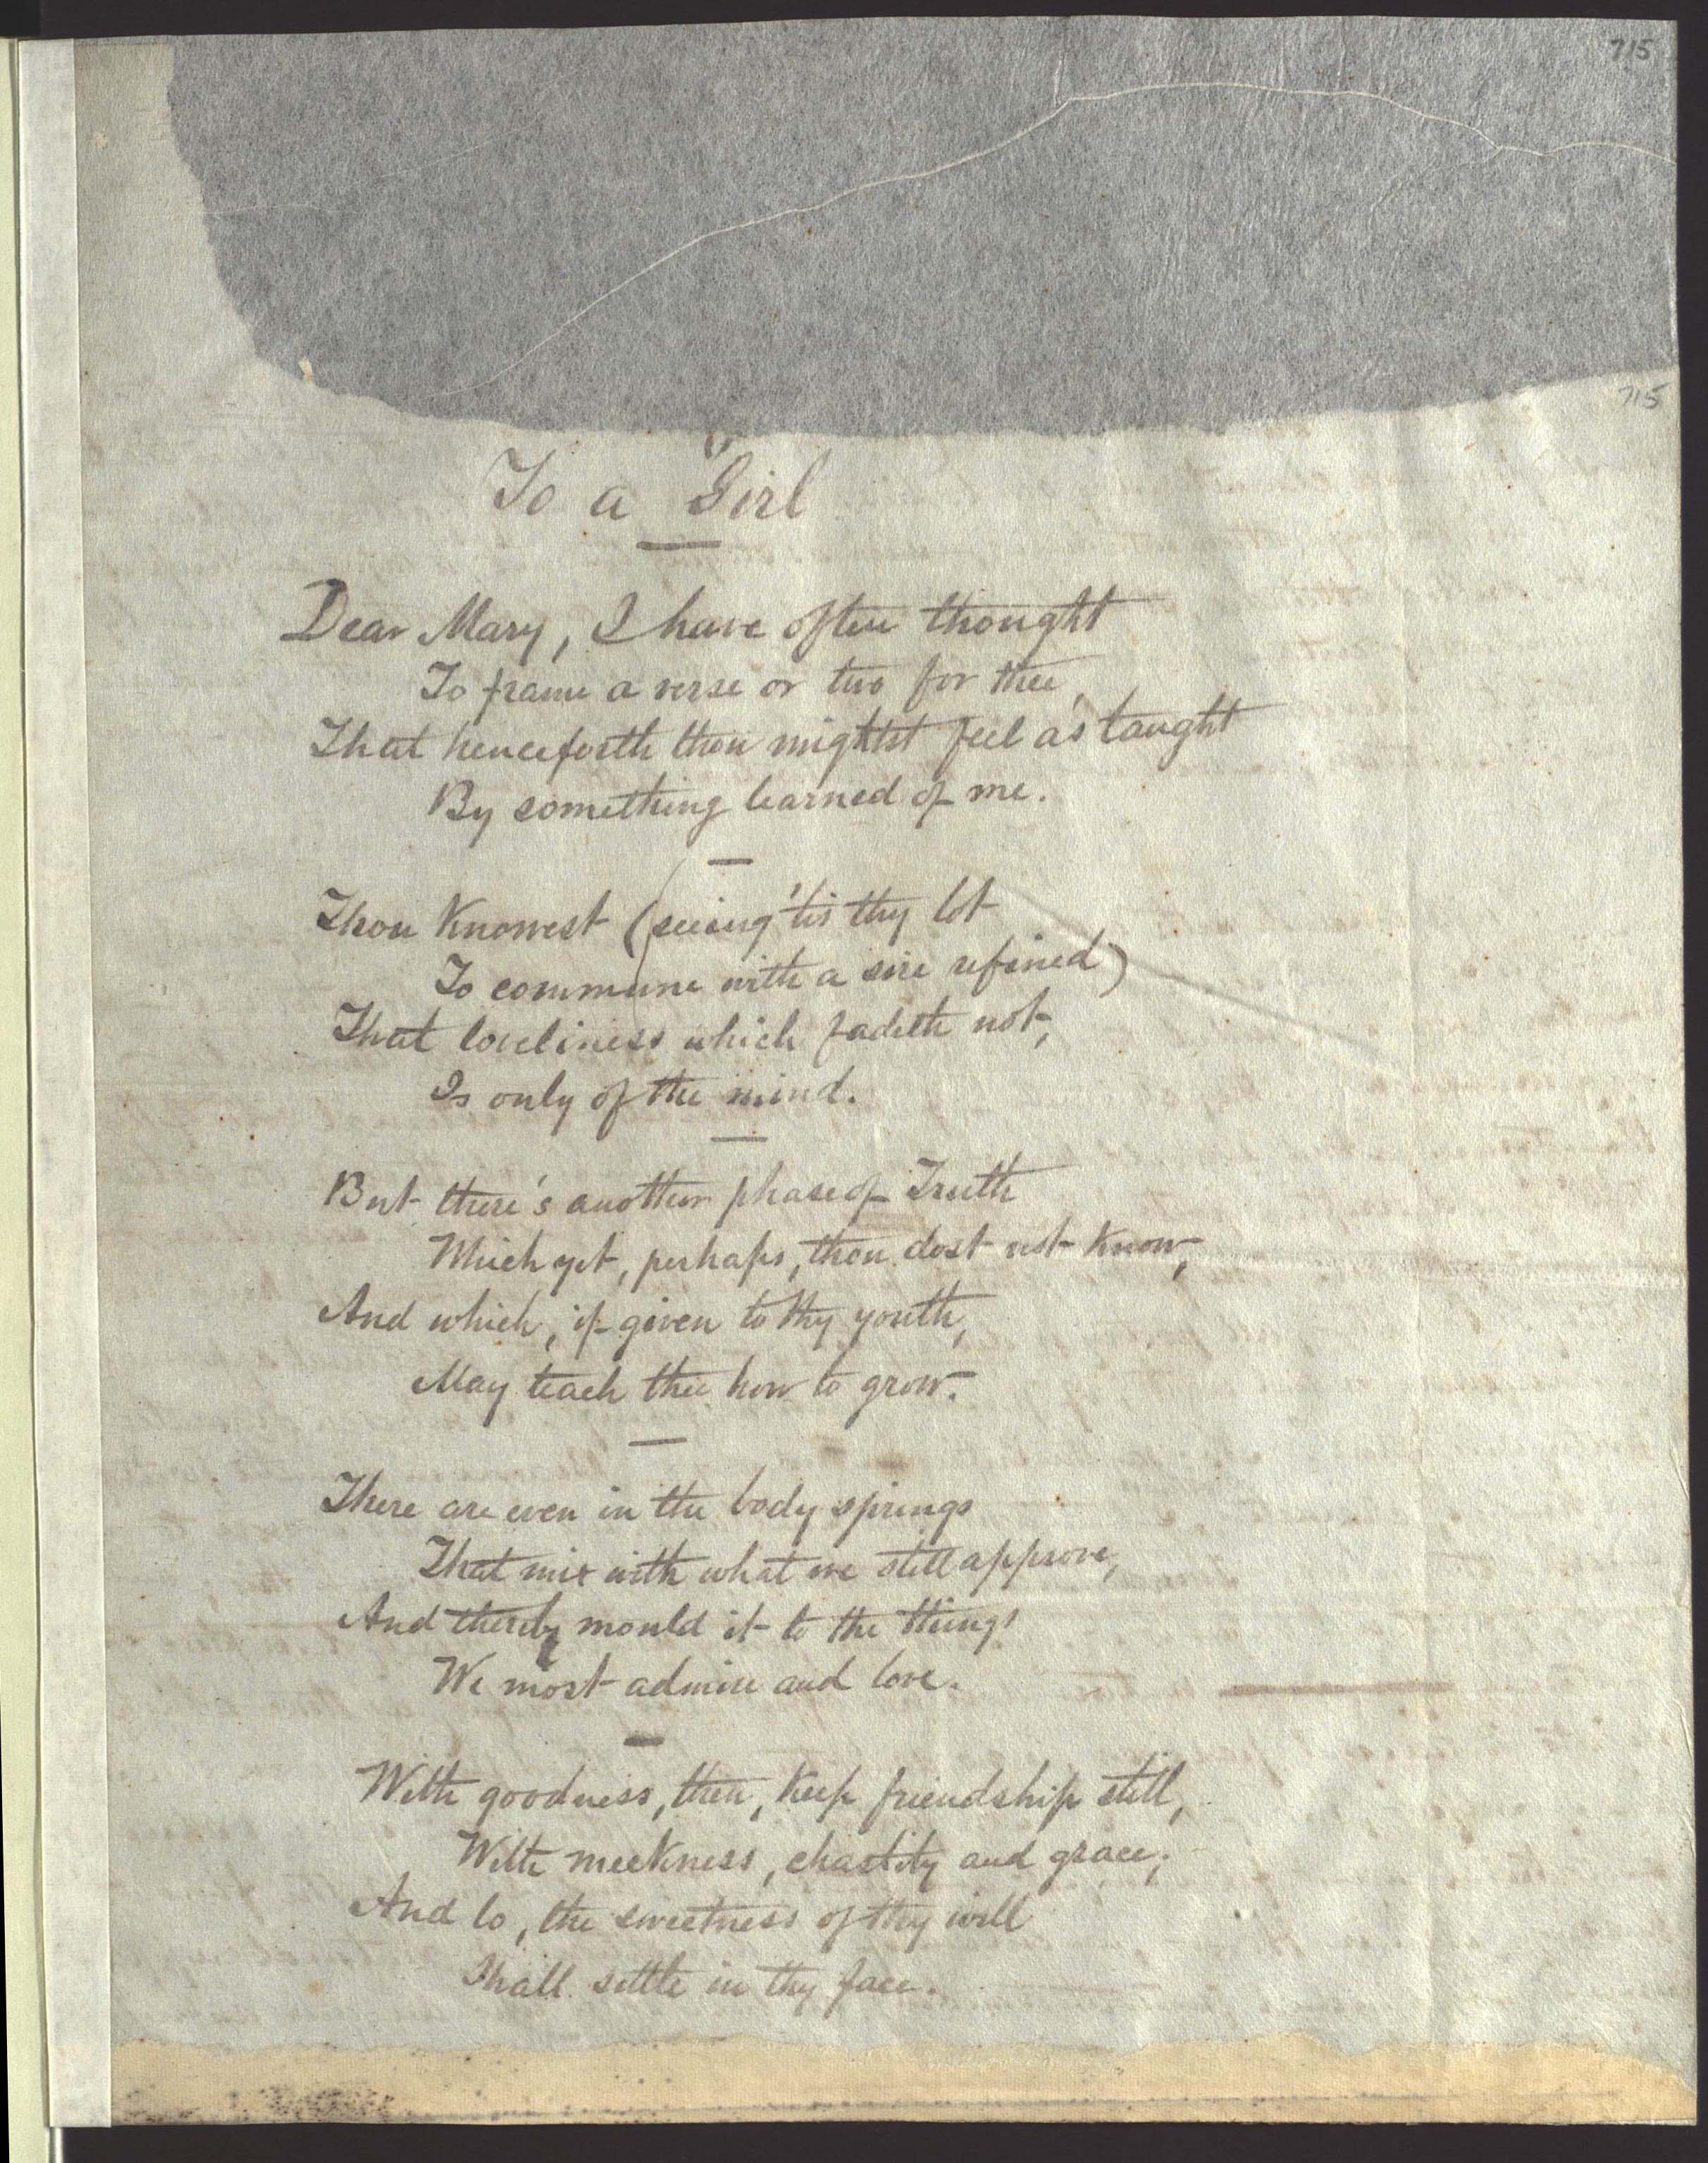 715
715
To a Girl
Dear Mary, I have often thought
To frame a verse or two for thee,
That henceforth thou mightst feel as taught
By something learned of me.
Thou knowest (seeing 'tis thy lot
To commune with a sire refined)
That loveliness which fadeth not,
Is only of the mind.
But there's another phase of Truth
Which yet, perhaps, thou dost not know,
And which, if given to thy youth,
May teach thee how to grow.
There are even in the body springs
That mix with what we still approve,
And thereby mould it to the things
We most admire and love.
With goodness, then, keep friendship still,
With meekness, chastity and grace;
And lo, the sweetness of thy will
Shall settle in thy face.